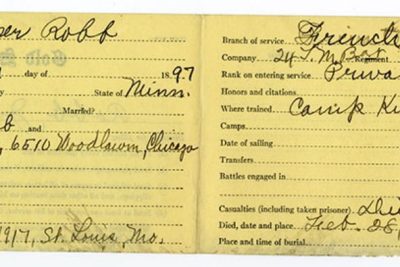 per Robb
day of 1897
State of Minn.
Married?
b and
, 6510 Woodlawn, Chicago
1917, St. Louis, Mo.
Branch of service
Company 24 T. M. Bat Regiment
Rank on entering service Priva
Honors and citations
Where trained Camp
Camps
Date of sailing
Transfers
Battles engaged in
Casualties (including taken prisoner)
Died, date and place Feb. 28,
Place and time of burial